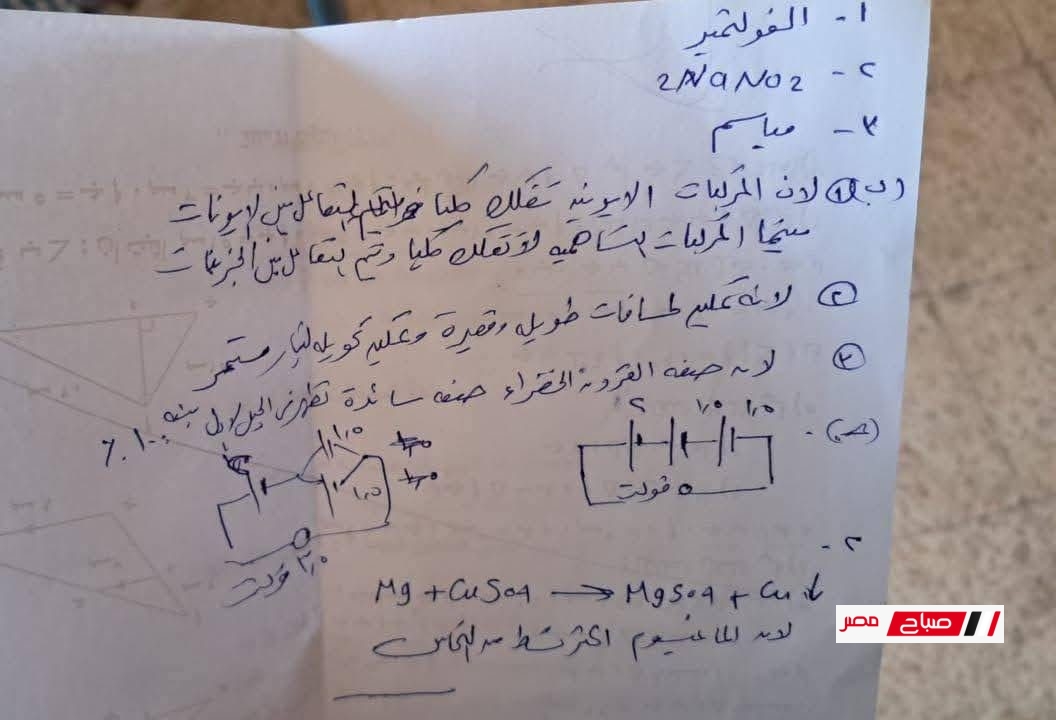 ١- الفولتميتر
٢- 2NaNO2
٣- مياسم
(ب) ① لان المركبات الايونية تتفكك كليا التفاعل بين الايونات
بينما المركبات التساهميه لا تتفكك كليا ويتم التفاعل بين الجزيئات
② لانه لمسافات طويله وقصيرة ويمكن تحويله لتيار مستمر
③ لان صفه القرون الخضراء صفه سائدة تظهر في الجيل الاول بنسبه ١٠٠٪
(جـ) -
٢ ١,٥ ١,٥
٥ فولت
١,٥
١,٥
٣,٥ فولت
٢-
Mg + CuSO4 → MgSO4 + Cu ↓
لان الماغنسيوم اكثر نشط من النحاس
صباح مصر